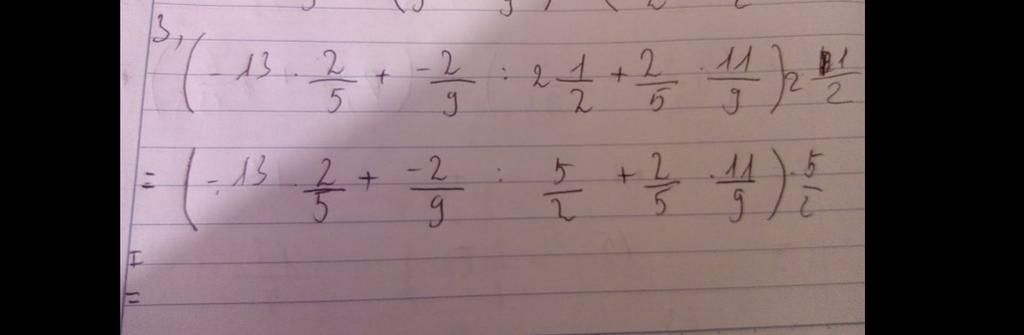 3, ( - 13 · 2/5 + -2/9 : 2 1/2 + 2/5 · 11/9 ) 2 1/2
= ( - 13 · 2/5 + -2/9 : 5/2 + 2/5 · 11/9 ) · 5/2
=
=